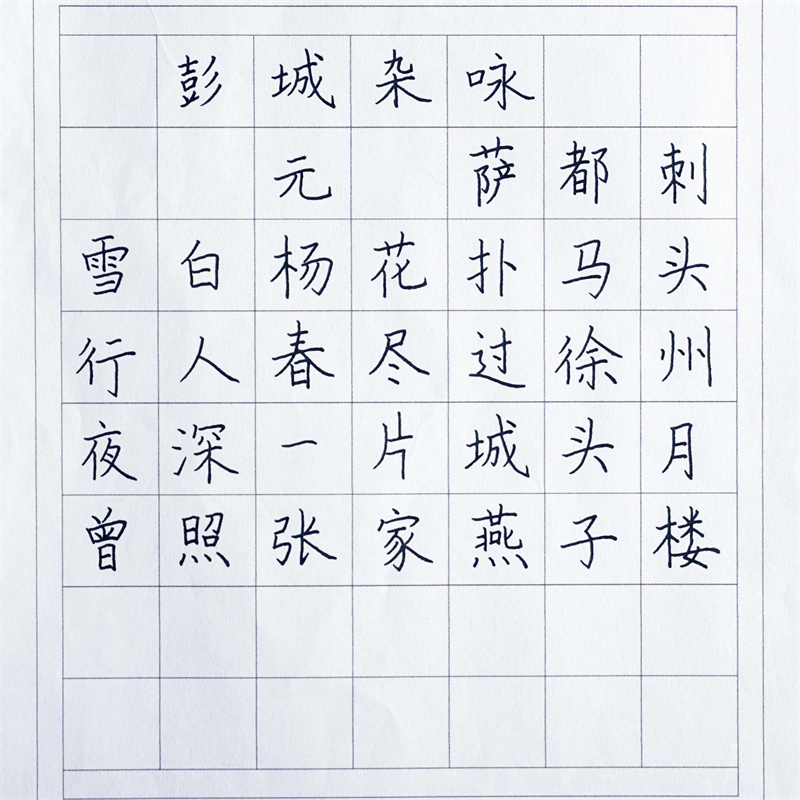 彭城杂咏
元 萨都刺
雪白杨花扑马头
行人春尽过徐州
夜深一片城头月
曾照张家燕子楼